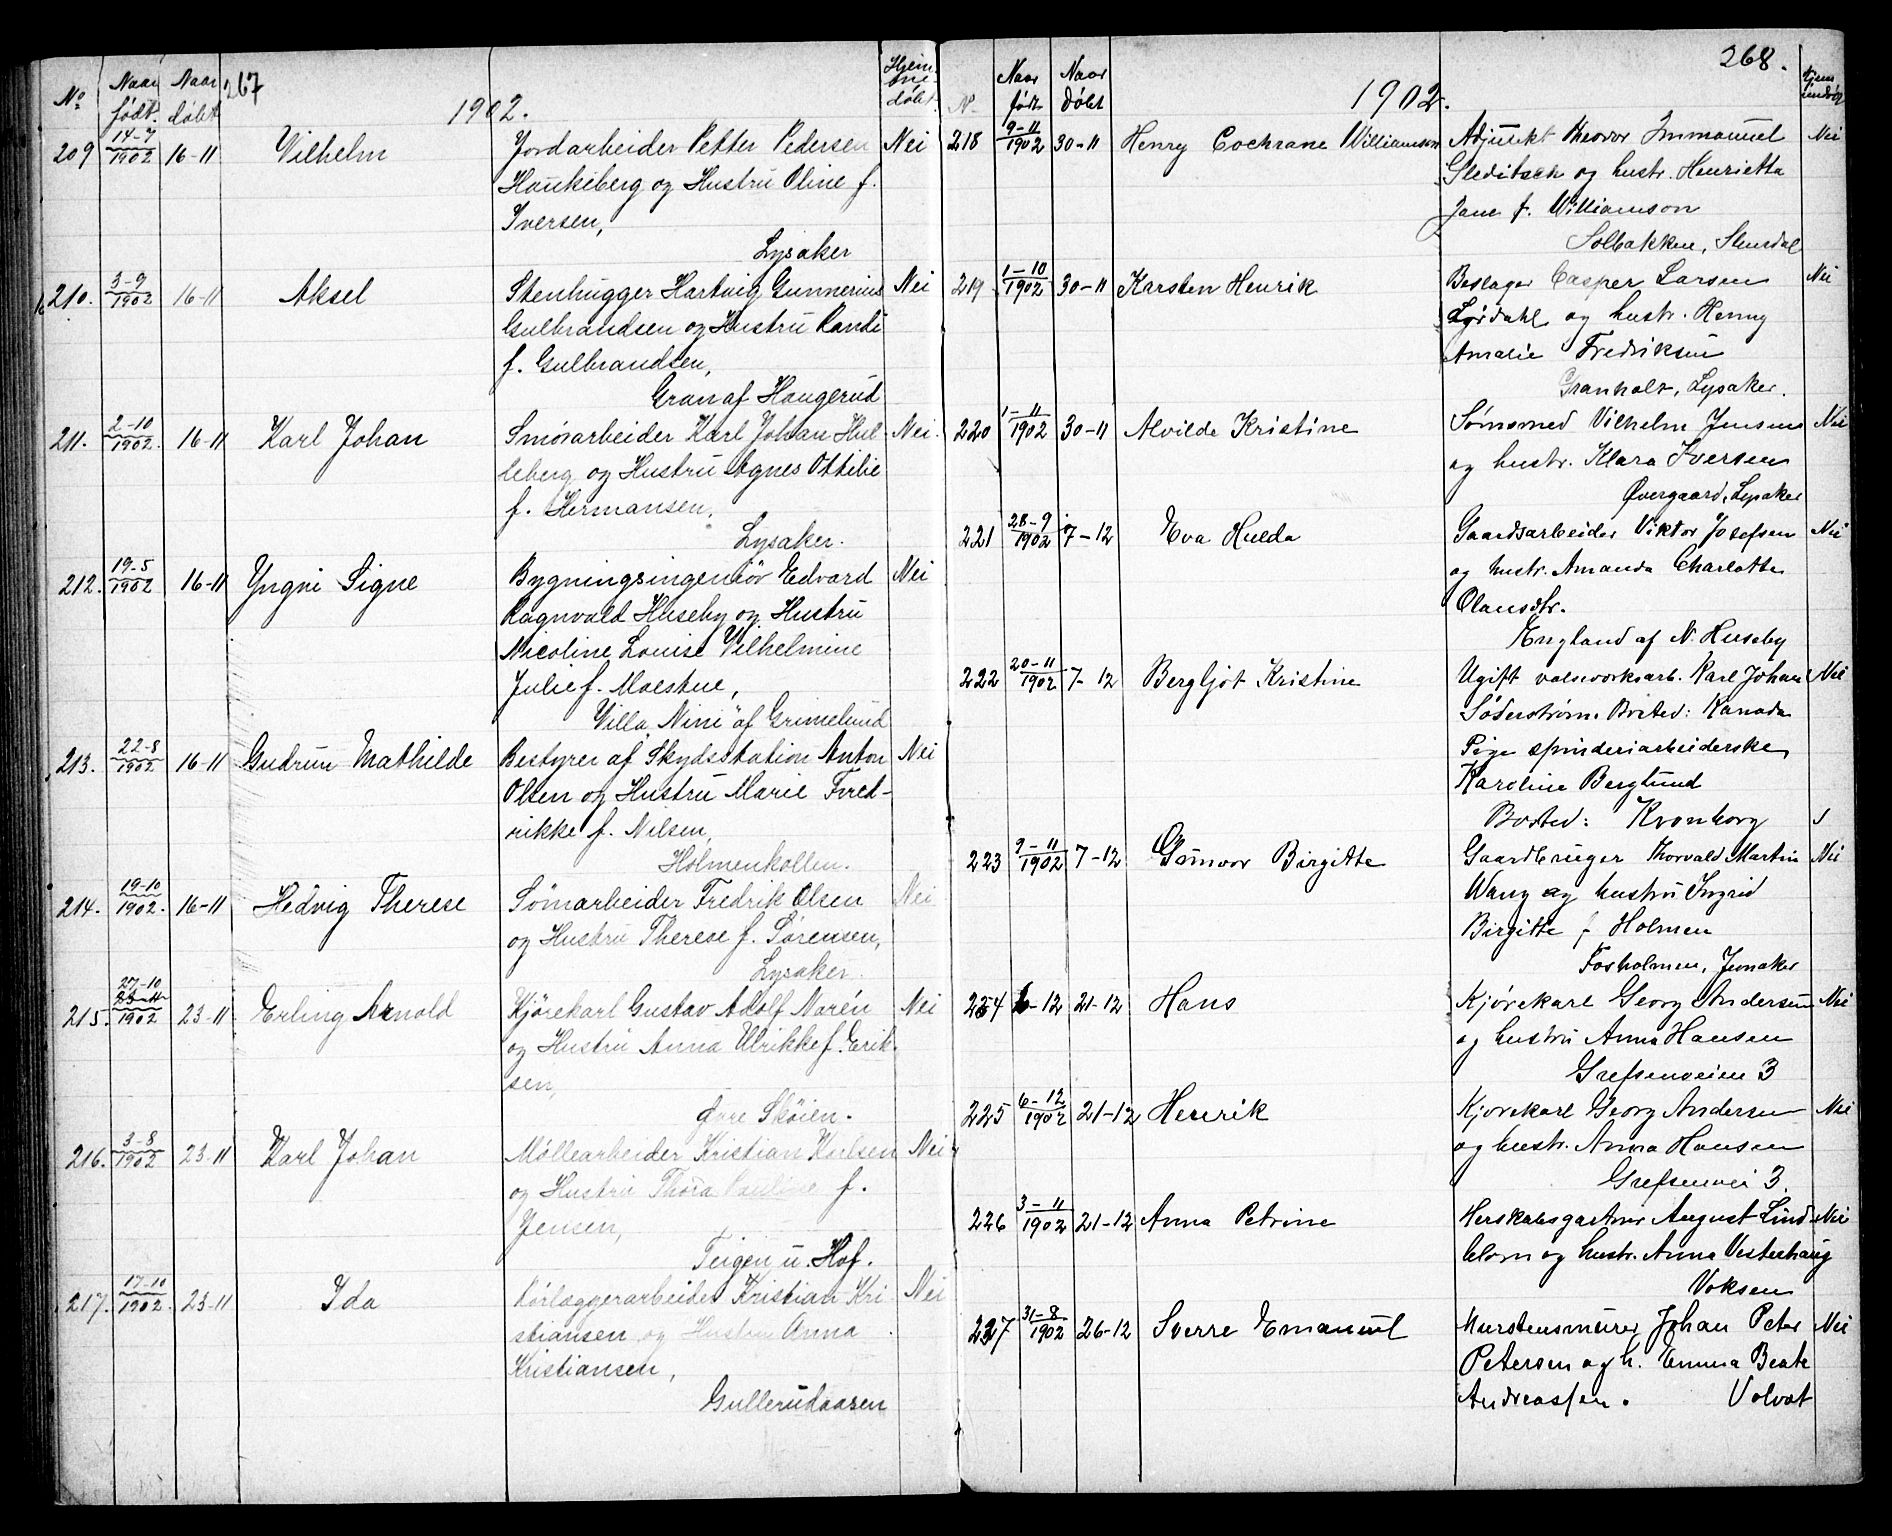 267
1902.
No Naar født. Naar døbt Hjemmedøbt.
209 14-7 1902 16-11 Vilhelm Jordarbeider Petter Pedersen Nei
Haukeberg og Hustru Oline f.
Iversen,
Lysaker
210. 3-9 1902 16-11 Aksel Stenhugger Hartvig Gunnerius Nei
Gulbrandsen og Hustru Randi
f. Gulbrandsen,
Gran af Haugerud
211. 2-10 1902. 16-11 Karl Johan Smørarbeider Karl Johan Hul- Nei.
leberg og Hustru Agnes Ottilie
f. Hermansen,
Lysaker.
212. 19-5 1902 16-11 Yngvi Signe Bygningsingeniør Edvard Nei
Ragnvald Huseby og Hustru
Nicoline Louise Vilhelmine
Julie f. Moestue,
Villa „Nini" af Grimelund
213. 22-8 1902 16-11 Gudrun Mathilde Bestyrer af Skydsstation Anton Nei
Olsen og Hustru Marie Fred-
rikke f. Nilsen,
Holmenkollen.
214. 19-10 1902. 16-11 Hedvig Therese Sømarbeider Fredrik Olsen Nei
og Hustru Therese f. Sørensen,
Lysaker.
215. 27-10 1902 23-11 Erling Arnold Kjørekarl Gustav Adolf Norén Nei
og Hustru Anna Ulrikke f. Erik-
sen,
Øvre Skøien.
216. 3-8 1902 23-11 Karl Johan Møllearbeider Kristian Karlsen Nei
og Hustru Thora Pauline f.
Jensen,
Teigen u. Hof.
217. 17-10 1902. 23-11 Ida Rørlæggerarbeider Kristian Kri Nei
stiansen og Hustru Anna
Kristiansen,
Gullerudaasen
268.
1902.
N. Naar født Naar døbt
218 9-11 1902 30-11 Henry Cochrane Williamson Adjunkt Theodor Immanuel Nei
Sleditsch og hustr. Henrietta
Jane f. Williamson
Solbakken, Slemdal
219 1-10 1902 30-11 Karsten Henrik Beslager Casper Larsen Nei
Lørdahl og hustr. Henny
Amalie Fredriksen
Granholt, Lysaker.
220 1-11 1902 30-11 Alvilde Kristine Sømsmed Vilhelm Jensen Nei
og hustr. Klara Iversen
Øvergaard, Lysaker
221 28-9 1902 7-12 Eva Hulda Gaardsarbeider Viktor Josefsen Nei
og hustr. Amanda Charlotte
Olausdtr.
England af N. Huseby
222 20-11 1902 7-12 Bergljot Kristine Ugift valseverksarb. Karl Johan Nei
Søderstrøm. Bosted: Kanada
Pige spinderiarbeiderske
Karoline Berglund
Bosted: Kronborg
223 9-11 1902 7-12 Gunvor Birgitte Gaardbruger Thorvald Martin Nei
Wang og hustru Ingrid
Birgitte f Holmen
Fosholmen, Jemaker
224 6-12 21-12 Hans Kjørekarl Georg Andersen Nei
og hustru Anna Hansen
Grefsenveien 3
225 6-12 1902 21-12 Henrik Kjørekarl Georg Andersen Nei
og hustr. Anna Hansen
Grefsenvei 3.
226 3-11 1902 21-12 Anna Petrine Herskabsgartner August Lind Nei
blom og hustr. Anna Vesterhaug
Voksen
227 31-8 1902 26-12 Sverre Emanuel Murstensmurer Johan Peter Nei
Petersen og h. Emma Beate
Andreassen. Volvat